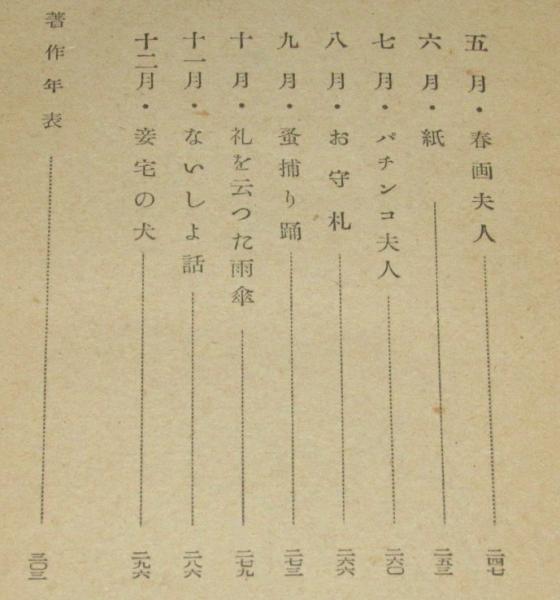 五月・春画夫人 二四七
六月・紙 二五三
七月・パチンコ夫人 二六〇
八月・お守札 二六六
九月・蚤捕り踊 二七三
十月・礼を云つた雨傘 二七九
十一月・ないしよ話 二八六
十二月・妾宅の犬 二九六
著作年表 三〇三